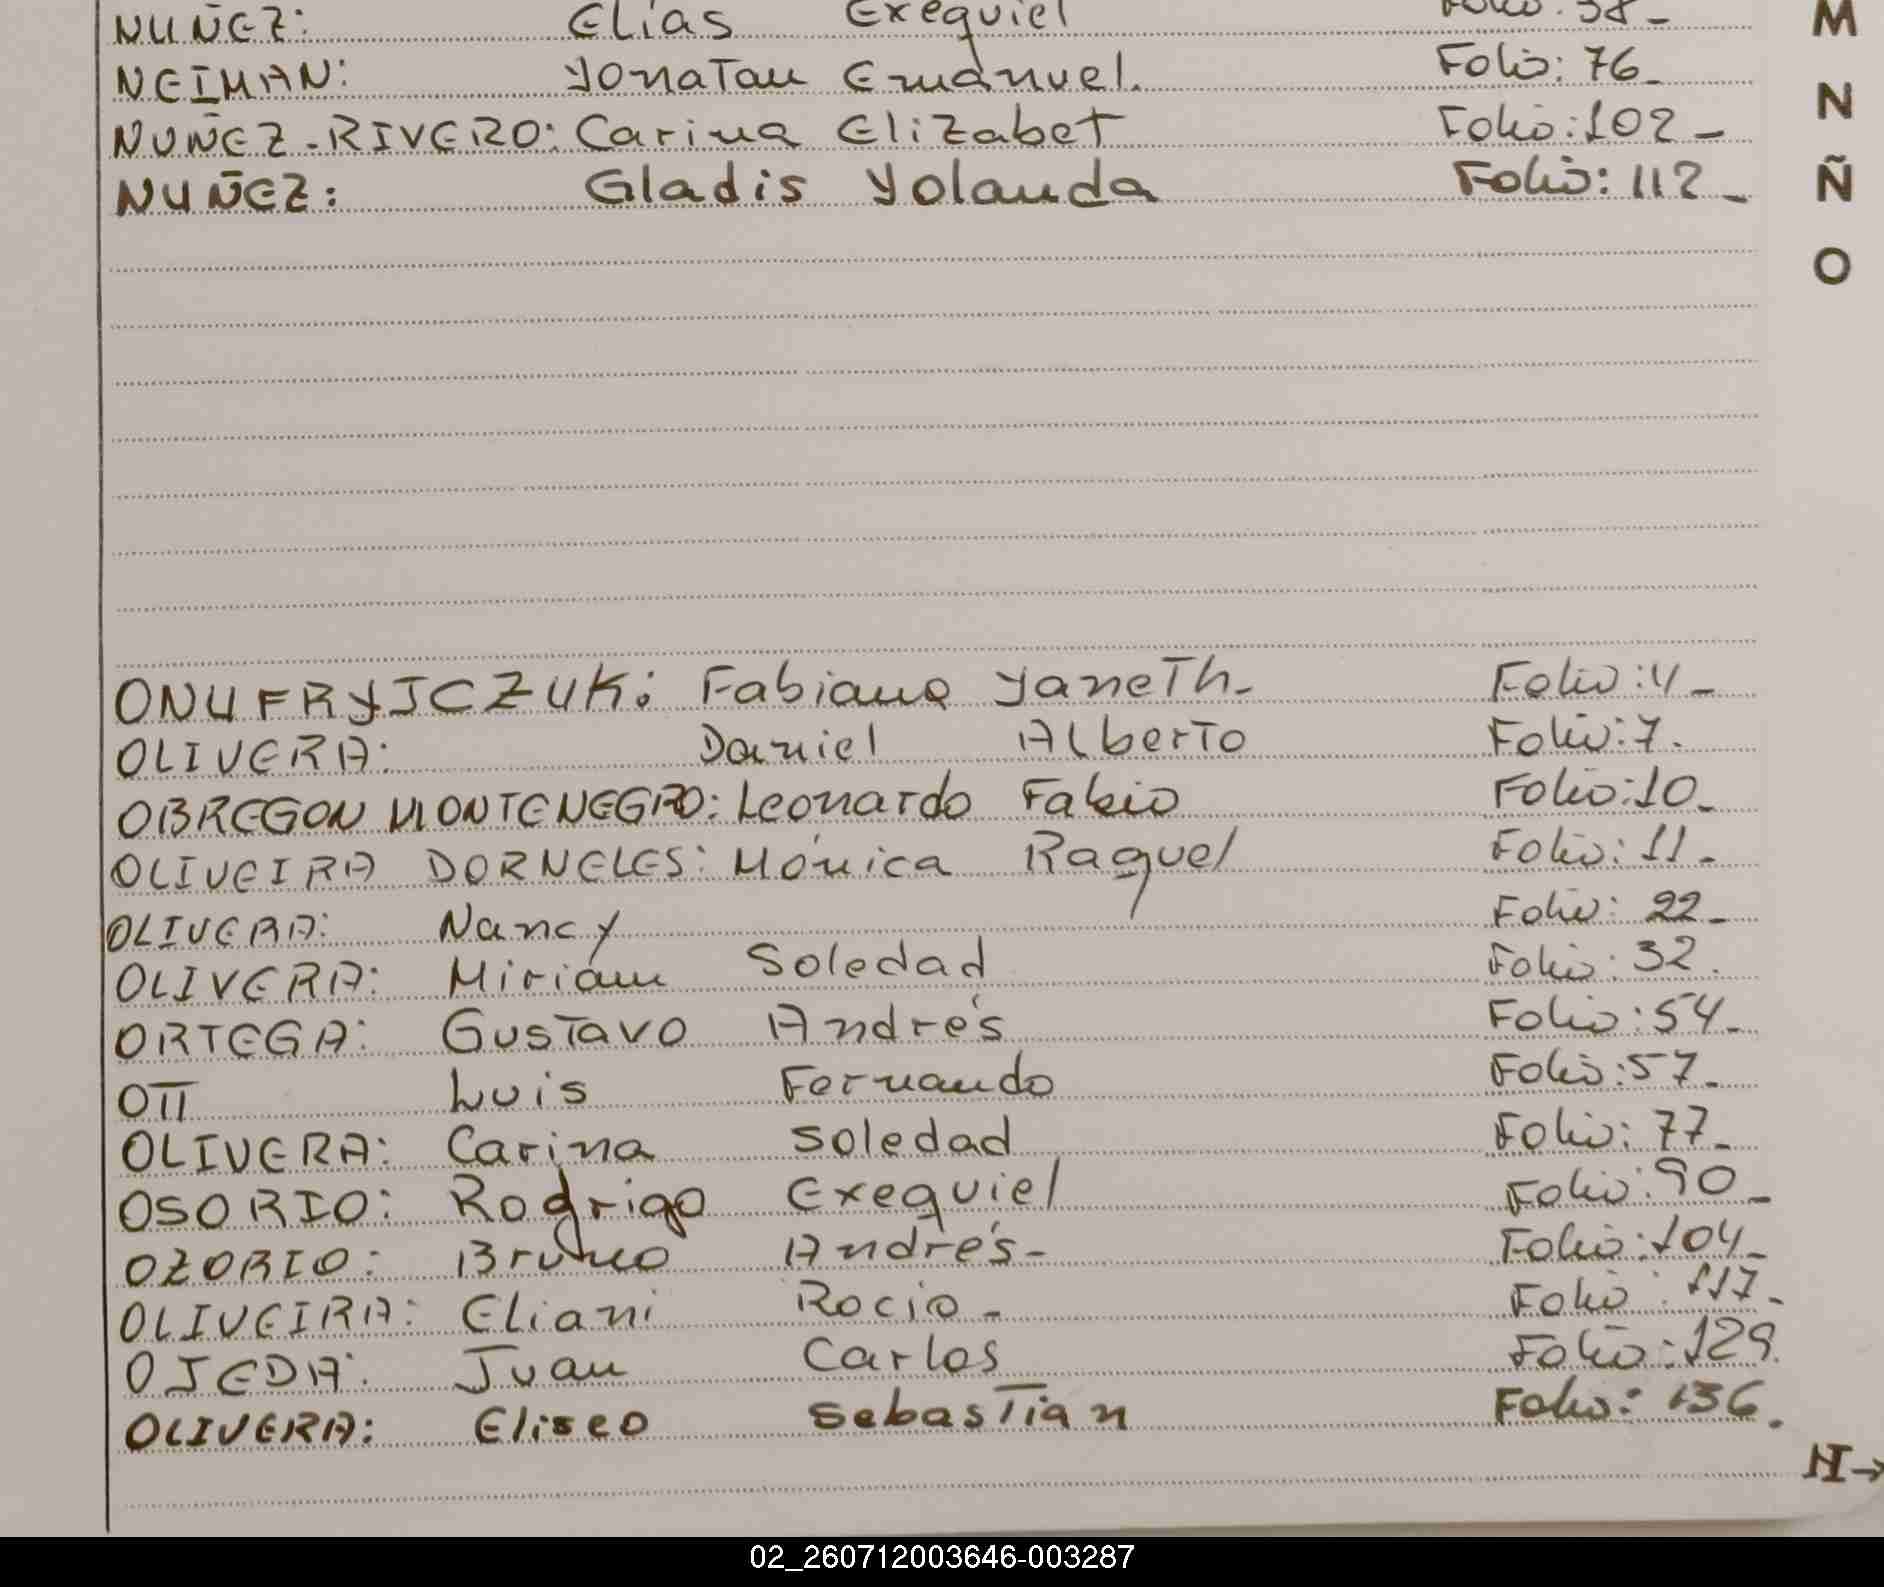 NUÑEZ: Elías Exequiel Folio: 38-
NEIMAN: Yonatan Emanuel. Folio: 76-
NUÑEZ-RIVERO: Carina Elizabet Folio: 102-
NUÑEZ: Gladis Yolanda Folio: 112-
ONUFRYJCZUK: Fabiana Yaneth- Folio: 4-
OLIVERA: Daniel Alberto Folio: 7.
OBREGON MONTENEGRO: Leonardo Fabio Folio: 10-
OLIVEIRA DORNELES: Mónica Raquel Folio: 11-
OLIVERA: Nancy Folio: 22-
OLIVERA: Miriam Soledad Folio: 32.
ORTEGA: Gustavo Andrés Folio: 54-
OTT Luis Fernando Folio: 57-
OLIVERA: Carina Soledad Folio: 77-
OSORIO: Rodrigo Exequiel Folio: 90-
OZORIO: Bruno Andrés- Folio: 104-
OLIVEIRA: Eliani Rocio- Folio: 117-
OJEDA: Juan Carlos Folio: 129.
OLIVERA: Eliseo Sebastian Folio: 136.
M
N
Ñ
O
N→
02_260712003646-003287